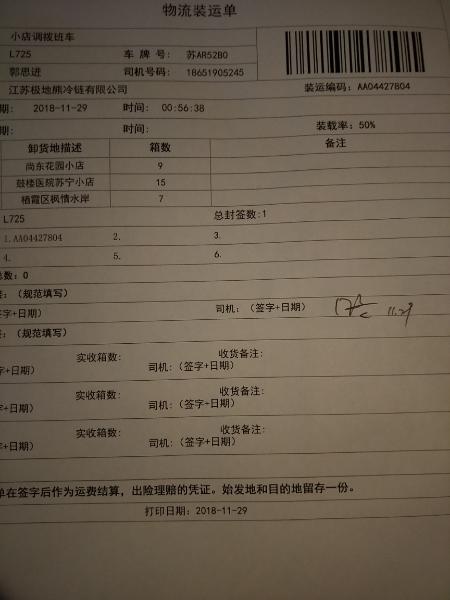 物流装运单
小店调拨班车
L725 车 牌 号: 苏AR52B0
郭思进 司机号码: 18651905245
江苏极地熊冷链有限公司 装运编码: AA04427804
期: 2018-11-29 时间: 00:56:38
期: 时间: 装载率: 50%
卸货地描述 箱数 备注
尚东花园小店 9
鼓楼医院苏宁小店 15
栖霞区枫情水岸 7
L725 总封签数:1
1.AA04427804 2. 3.
4. 5. 6.
总数: 0
:（规范填写）
字+日期） 司机:（签字+日期） 11.29
:（规范填写）
实收箱数: 收货备注:
字+日期） 司机:（签字+日期）
实收箱数: 收货备注:
字+日期） 司机:（签字+日期）
实收箱数: 收货备注:
字+日期） 司机:（签字+日期）
单在签字后作为运费结算, 出险理赔的凭证。始发地和目的地留存一份。
打印日期: 2018-11-29